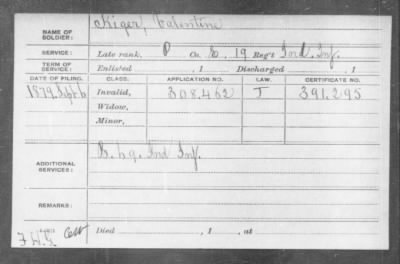 NAME OF SOLDIER: Kiger, Valentine
SERVICE: Late rank, P Co. E, 19 Reg't Ind. Inf.
TERM OF SERVICE: Enlisted , 1 Discharged , 1
DATE OF FILING. CLASS. APPLICATION NO. LAW. CERTIFICATE NO.
1879 Sept 6 Invalid, 308.462 J 391.295
Widow,
Minor,
ADDITIONAL SERVICES: Ind Inf.
REMARKS:
Died , 1 , at